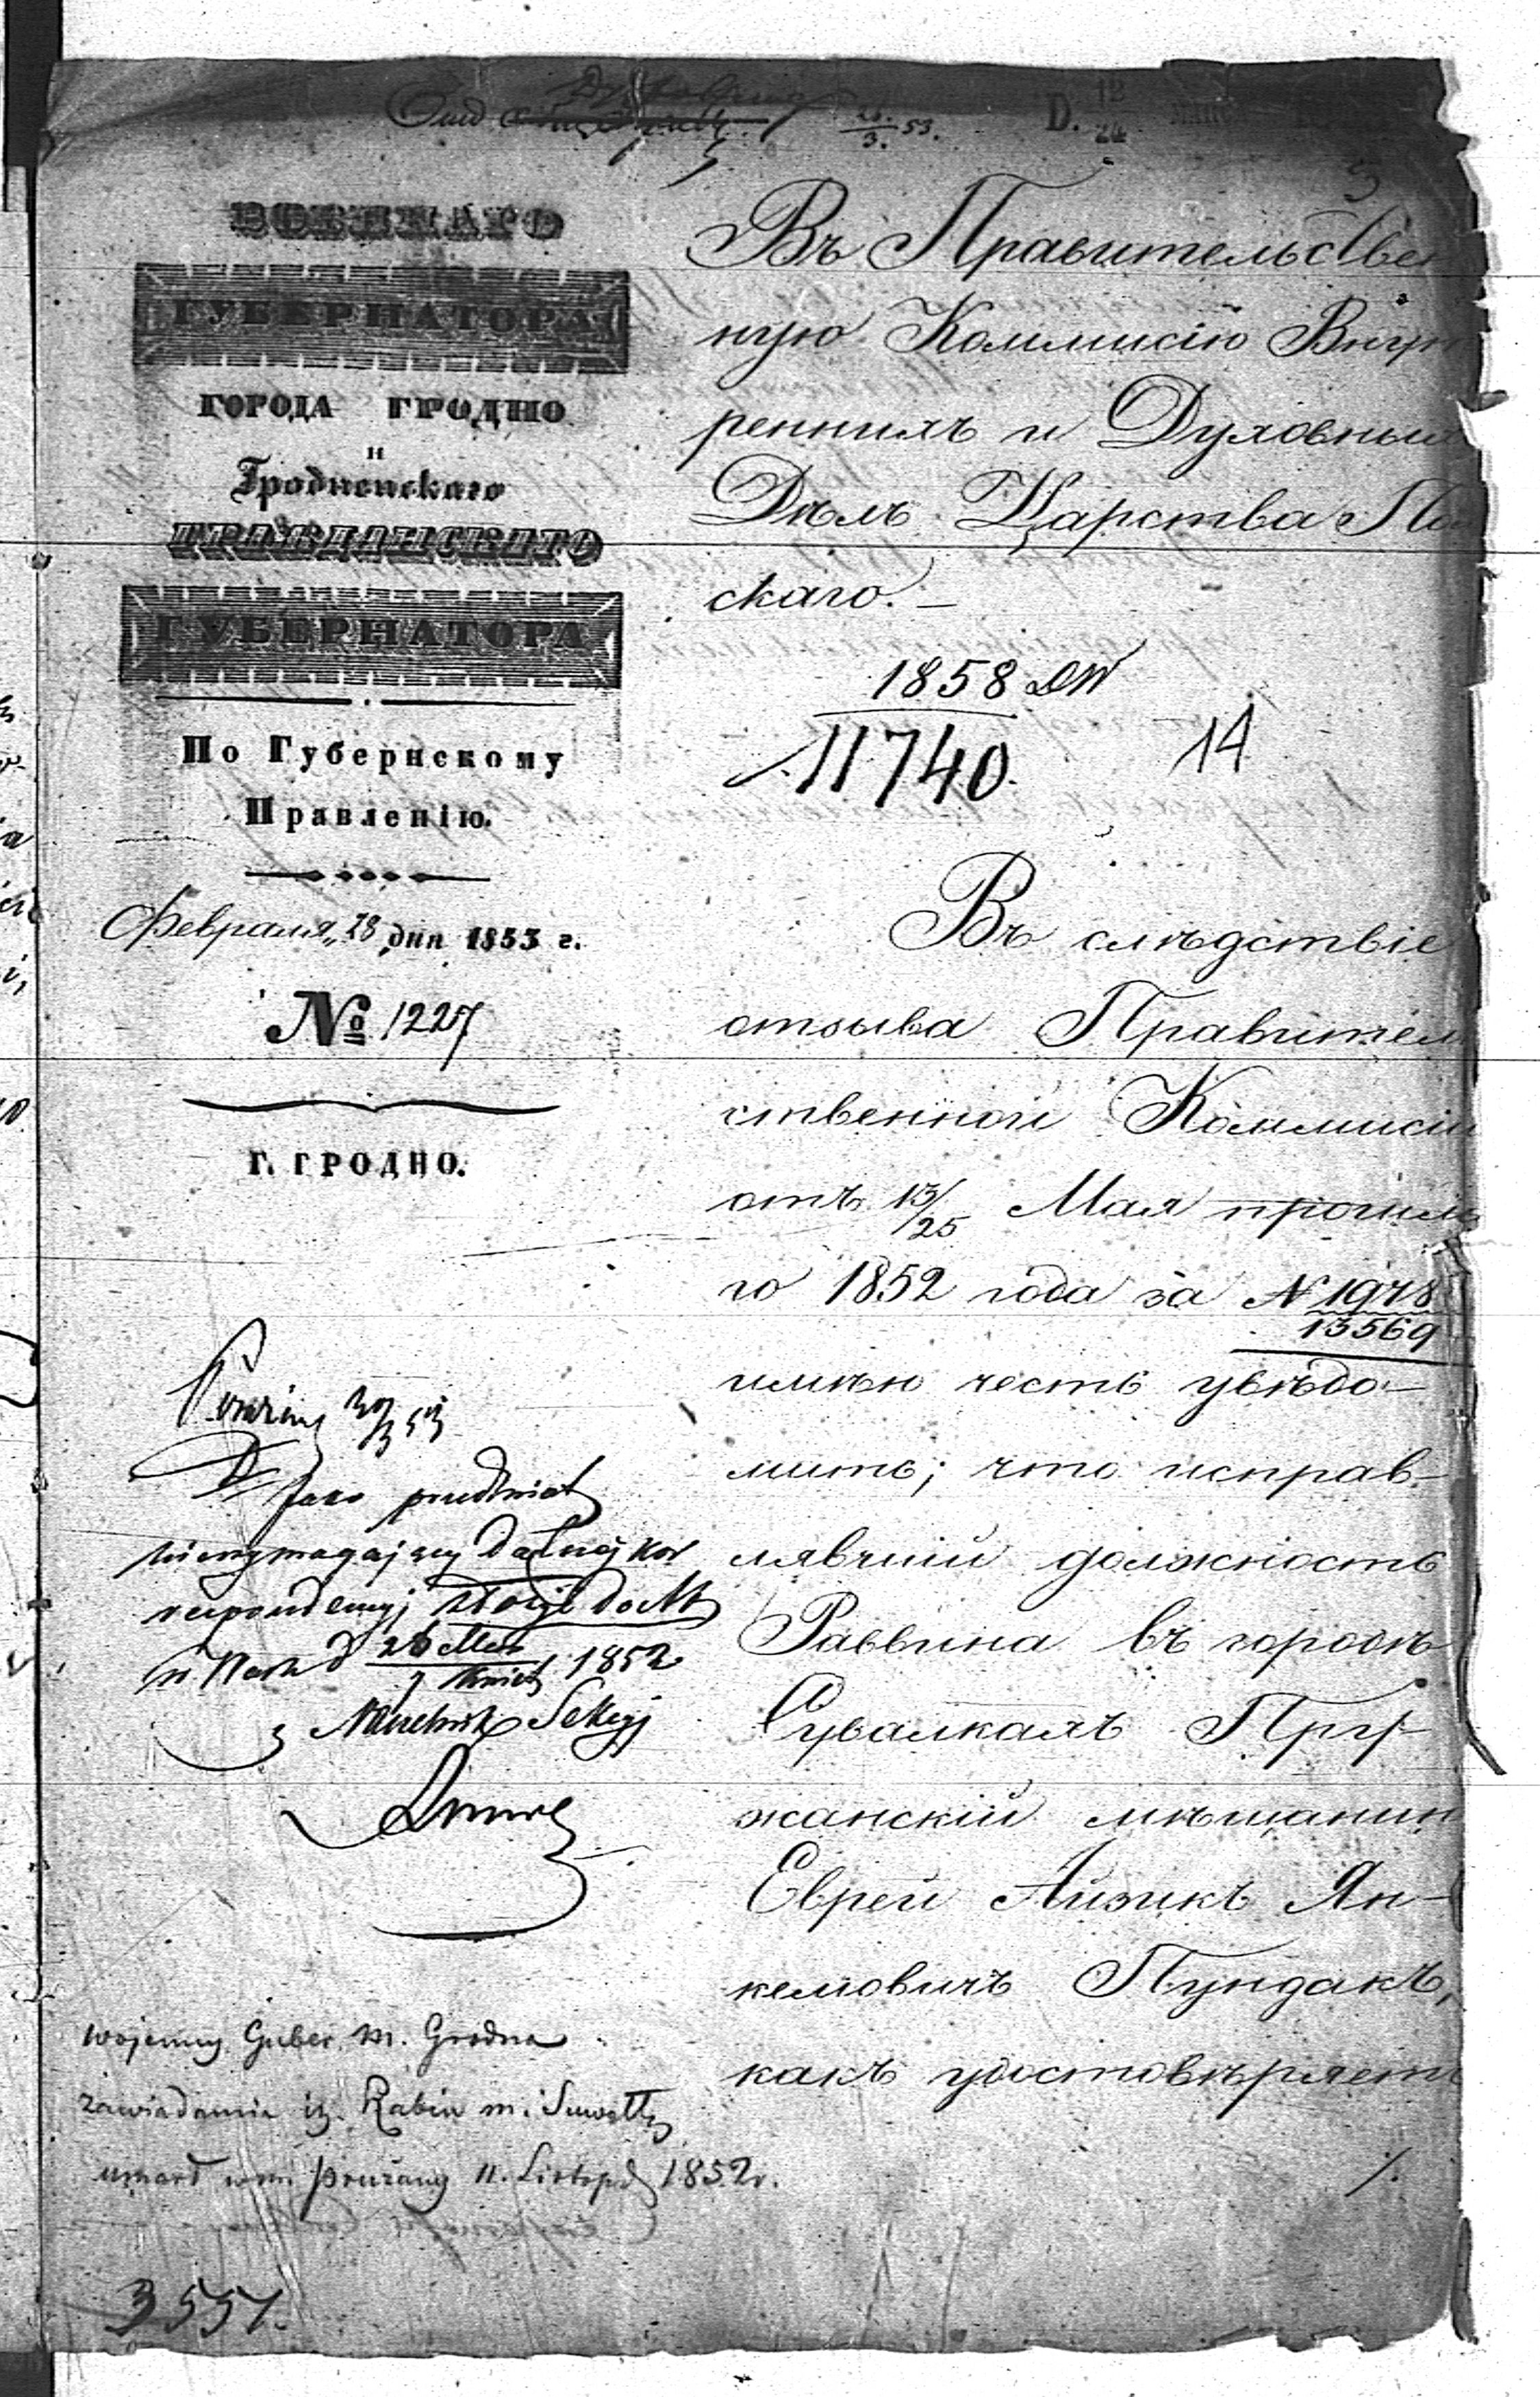 28/3 53.
D. 12/24
5
ВОЕННАГО
ГУБЕРНАТОРА
ГОРОДА ГРОДНО
и
Гродненскаго
ГРАЖДАНСКАГО
ГУБЕРНАТОРА
По Губернскому
Правленію.
Февраля „28 дня 1853 г.
№ 1227
Г. ГРОДНО.
Въ Правительствен
ную Коммисію Внут
реннихъ и Духовных
Дѣлъ Царства Поль
скаго. —
1858 DW
11740.
14
Въ слѣдствіе
отзыва Правитель
ственной Коммисіи
отъ 13/25 Мая прошла
го 1852 года за N 1978
13569
имѣю честь увѣдо-
мить; что исправ-
лявшій должность
Раввина въ городѣ
Сувалкахъ Пру-
жанскій мѣщанин
Еврей Айзикъ Ян-
келовичъ Пундакъ,
какъ удостовѣряетъ
./.
Jako przedmiot
niewymagający dalszej kor
respondencyi złożyć do Akt
26 Maja 1852
Naczelnik Sekcyi
wojenny Guber. m. Grodna
zawiadamia iż Rabin m. Suwałk
umarł w m. Prużany 11. Listopd 1852 r.
3551.